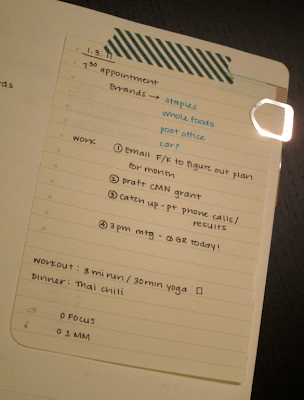 rds
1.3.11
7:30 appointment
Errands → staples
whole foods
post office
car?
work ① Email F/K to figure out plan
for month
② Draft CMN grant
③ Catch up - pt phone calls/
results
④ 3pm mtg - GR today!
workout: 3 mi run / 30 min yoga □
Dinner: Thai chili
0 FOCUS
0 1 MM